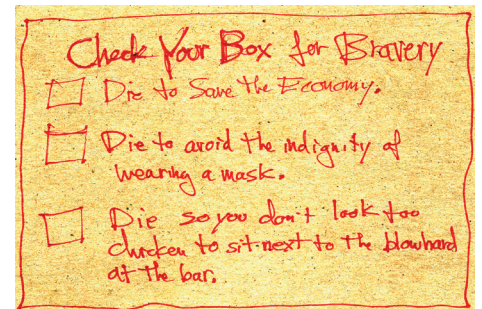 Check Your Box for Bravery
Die to Save the Economy.
Die to avoid the indignity of
wearing a mask.
Die so you don't look too
chicken to sit next to the blowhard
at the bar.